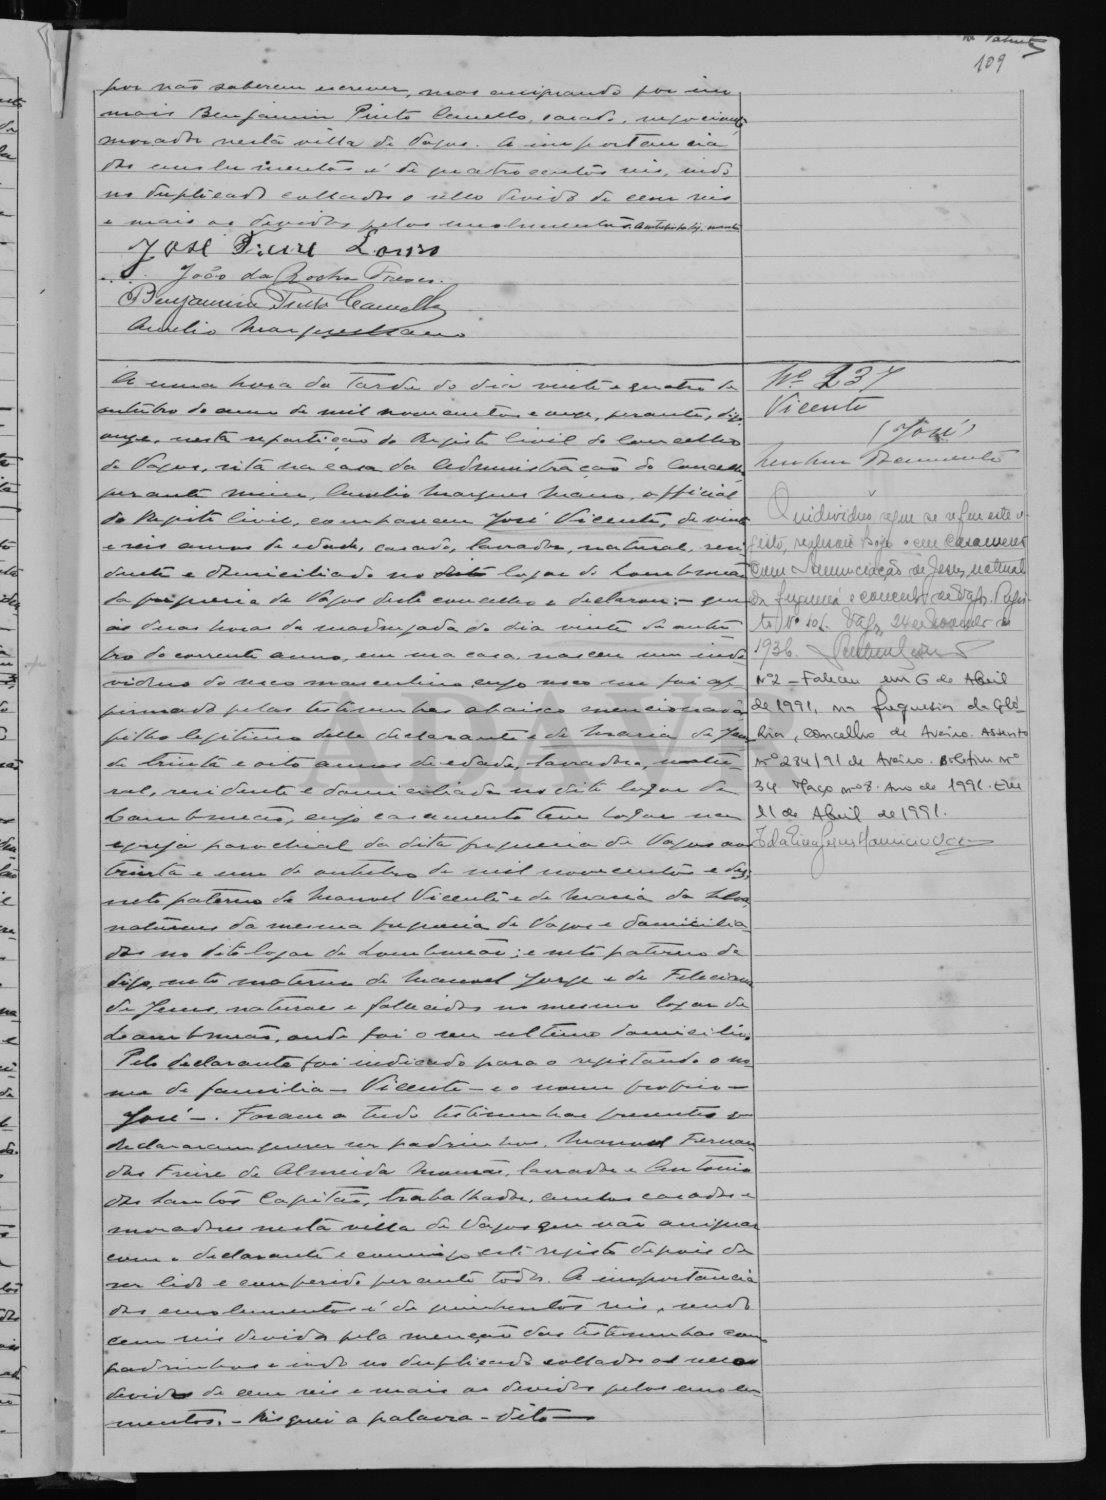 109
por não saberem escrever, mas assignando por im
mais Benjamim Pinto Camello, casado, negociante,
morador nesta villa de Vagos. A importancia
dos emolumentos é de quatrocentos reis, indo
no duplicado collados o sello devido de cem reis
e mais os devidos pelos emolumentos.
José Freire Lousro
João da Rocha
Benjamim Pinto Camello
Aurelio Marques Mano
A uma hora da tarde do dia vinte e quatro de
outubro do anno de mil novecentos e onze, perante, digo,
onze, nesta repartição do Registo Civil do Concelho
de Vagos, sita na casa da Administração do Concelho
perante mim, Aurelio Marques Mano, official
do Registo Civil, compareceu José Vicente, de vinte
e seis annos de edade, casado, lavrador, natural, resi
dente e domiciliado no dito logar de Lombomeão
da freguesia de Vagos deste concelho e declarou: – que
ás duas horas da madrugada do dia vinte de outu
bro do corrente anno, em sua casa, nasceu um indi
viduo do sexo masculino, cujo sexo me foi af
firmado pelas testemunhas abaixo mencionadas
filho legitimo delle declarante e de Maria de Jesus
de trinta e oito annos de edade, lavradora, natu-
ral, residente e domiciliada no dito logar de
Lombomeão, cujo casamento teve logar na
egreja parochial da dita freguesia de Vagos aos
trinta e um de outubro de mil novecentos e dez,
neto paterno de Manuel Vicente e de Maria da Silva,
naturaes da mesma freguesia de Vagos e domicilia
dos no dito logar de Lombomeão; e neto paterno de
digo, neto materno de Manuel Jorge e de Feliciana
de Jesus, naturaes e fallecidos no mesmo logar de
Lombomeão, onde foi o seu ultimo domicilio.
Pelo declarante foi indicado para o registando o no
me de familia – Vicente – e o nome proprio –
José –. Foram a tudo testemunhas presentes e
declararam querer ser padrinhos, Manuel Fernan
des Freire de Almeida Mourão, lavrador e Antonio
dos Santos Capitão, trabalhador, ambos casados e
moradores nesta villa de Vagos que vão assignar
com o declarante e commigo este registo depois de
ser lido e conferido perante todos. A importancia
dos emolumentos é de quinhentos reis, sendo
cem reis devidos pela menção das testemunhas como
padrinhos e indo no duplicado collados os sellos
devidos de cem reis e mais os devidos pelos emolu
mentos. – Risquei a palavra – dito –
Nº 237
Vicente
(José)
Nenhum Documento
O individuo a que se refere este re
gisto, realisou hoje o seu casamento
com Annunciação de Jesus, natural
da freguesia e concelho de Vagos. Regis-
to Nº 106. Vagos, 24 de
1936.
Nº2 – Faleceu em 6 de Abril
de 1991, na freguesia da Gló-
ria, concelho de Aveiro. Assento
nº 284/91 de Aveiro. Boletim nº
34 Maço nº 8. Ano de 1991. Em
11 de Abril de 1991.
ADAVR